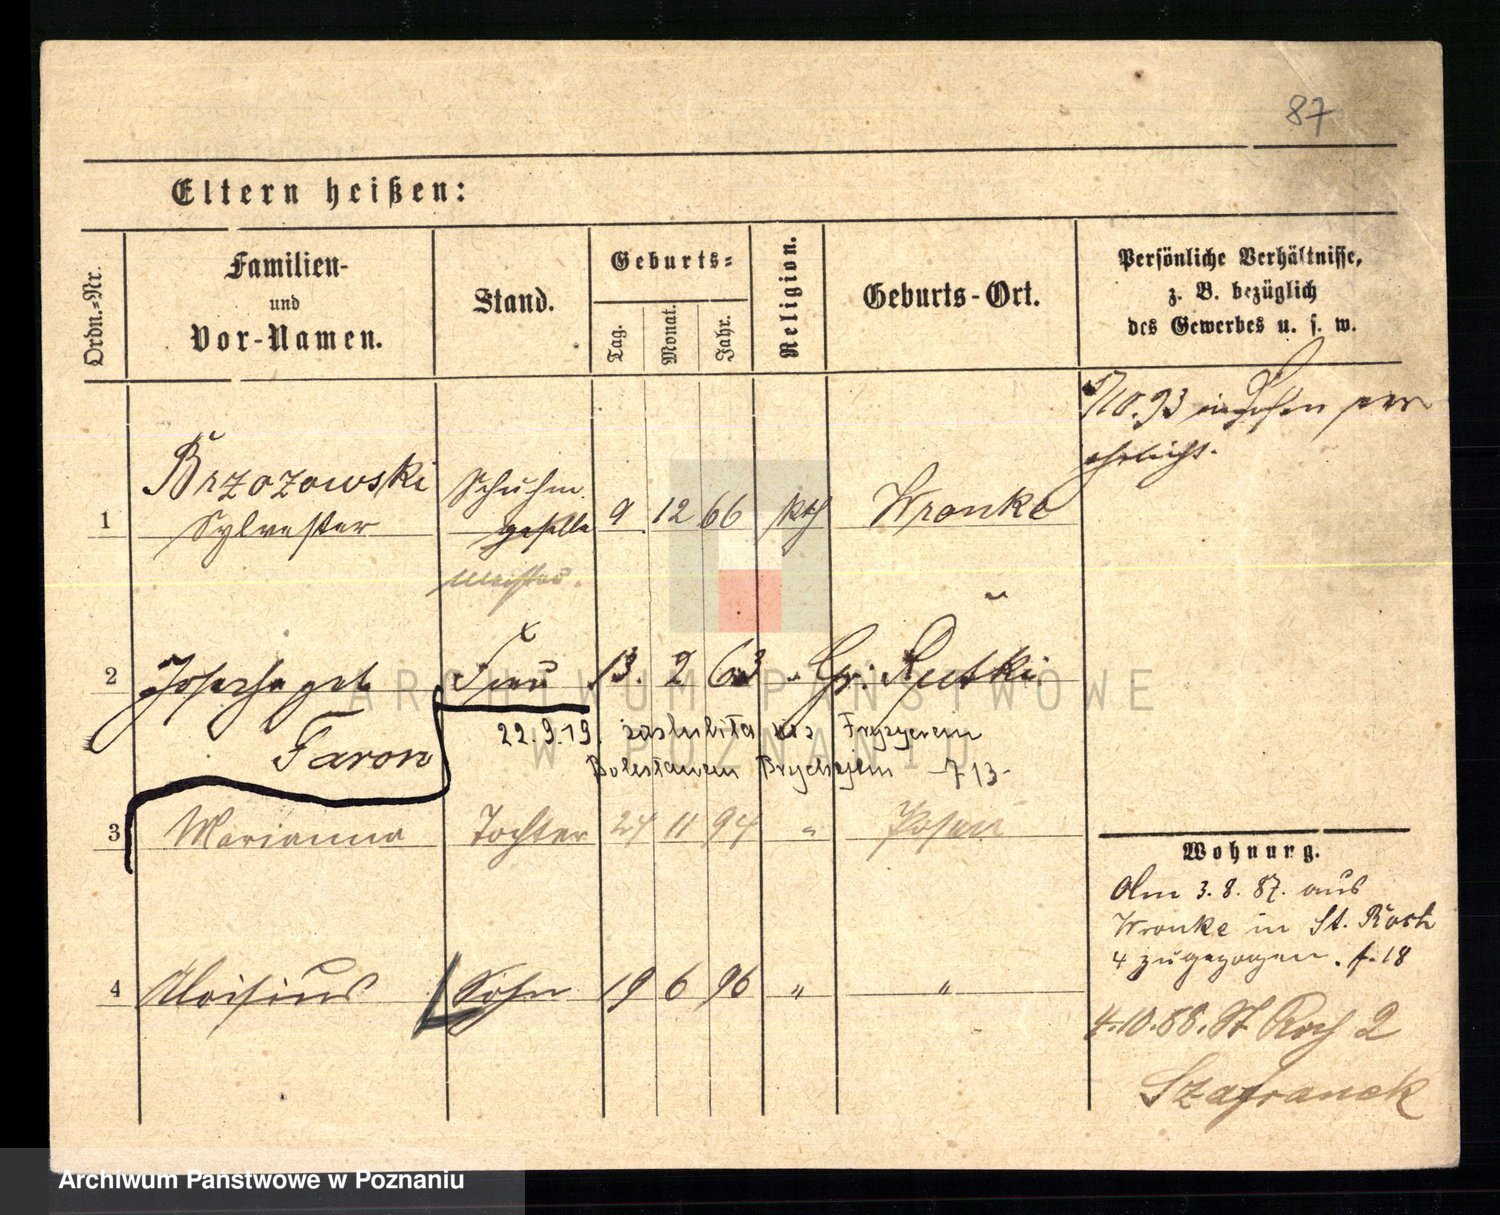 87
Eltern heißen:
Ordn.-Nr.
Familien-
und
Vor-Namen.
Stand.
Geburts-
Tag.
Monat.
Jahr.
Religion.
Geburts-Ort.
Persönliche Verhältnisse,
z. B. bezüglich
des Gewerbes u. s. w.
10.93 in Posen ver
ehelicht.
1 Brzozowski
Sylvester
Schuhm.
geselle
Meister.
9 12 66 kth Wronke
2 Josepha geb.
Faron
Frau 13. 2 63 " Gr: Rutki
22.9.19. zaślubiła się Fryzyerem
Bolesławem 713-
3 Marianna Tochter 24 11 94 " Posen
4 Aloisius Sohn 19 6 96 " "
Wohnung.
Am 3.8.87. aus
Wronke in St. Roch
4 zugezogen. f. 18
4.10.88. St Roch 2
Szafranek
ARCHIWUM PAŃSTWOWE
W POZNANIU
Archiwum Państwowe w Poznaniu